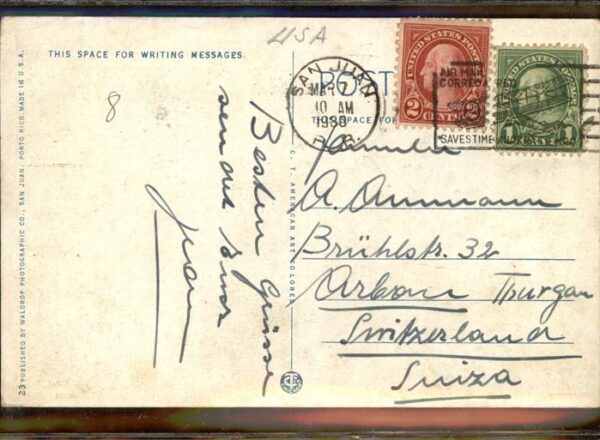 USA
THIS SPACE FOR WRITING MESSAGES.
8
Besten Grüsse
senden
SAN JUAN
MAR 7
10 AM
1930
P.R.
POST
THIS SPACE FOR
UNITED STATES POSTAGE
2 CENTS 2
1
AIR MAIL
CORREO AEREO
SAVES TIME
Familie
A. Ammann
Brühlstr. 32
Arbon Thurgau
Switzerland
Suiza
C. T. AMERICAN ART COLORED
23 PUBLISHED BY WALDROP PHOTOGRAPHIC CO., SAN JUAN, PORTO RICO. MADE IN U.S.A.